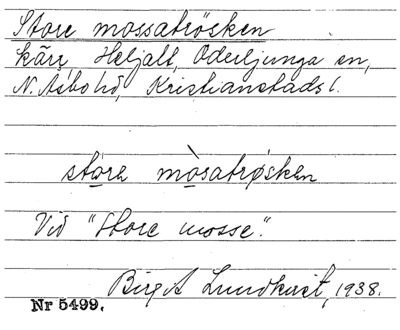 Store mossatrösken
kärr, Heljalt, Oderljunga sn,
N. Åsbo hd, Kristianstads l.
store mòsatrøsken
Vid "Store mosse".
Birgit Lundkvist, 1938.
Nr 5499.